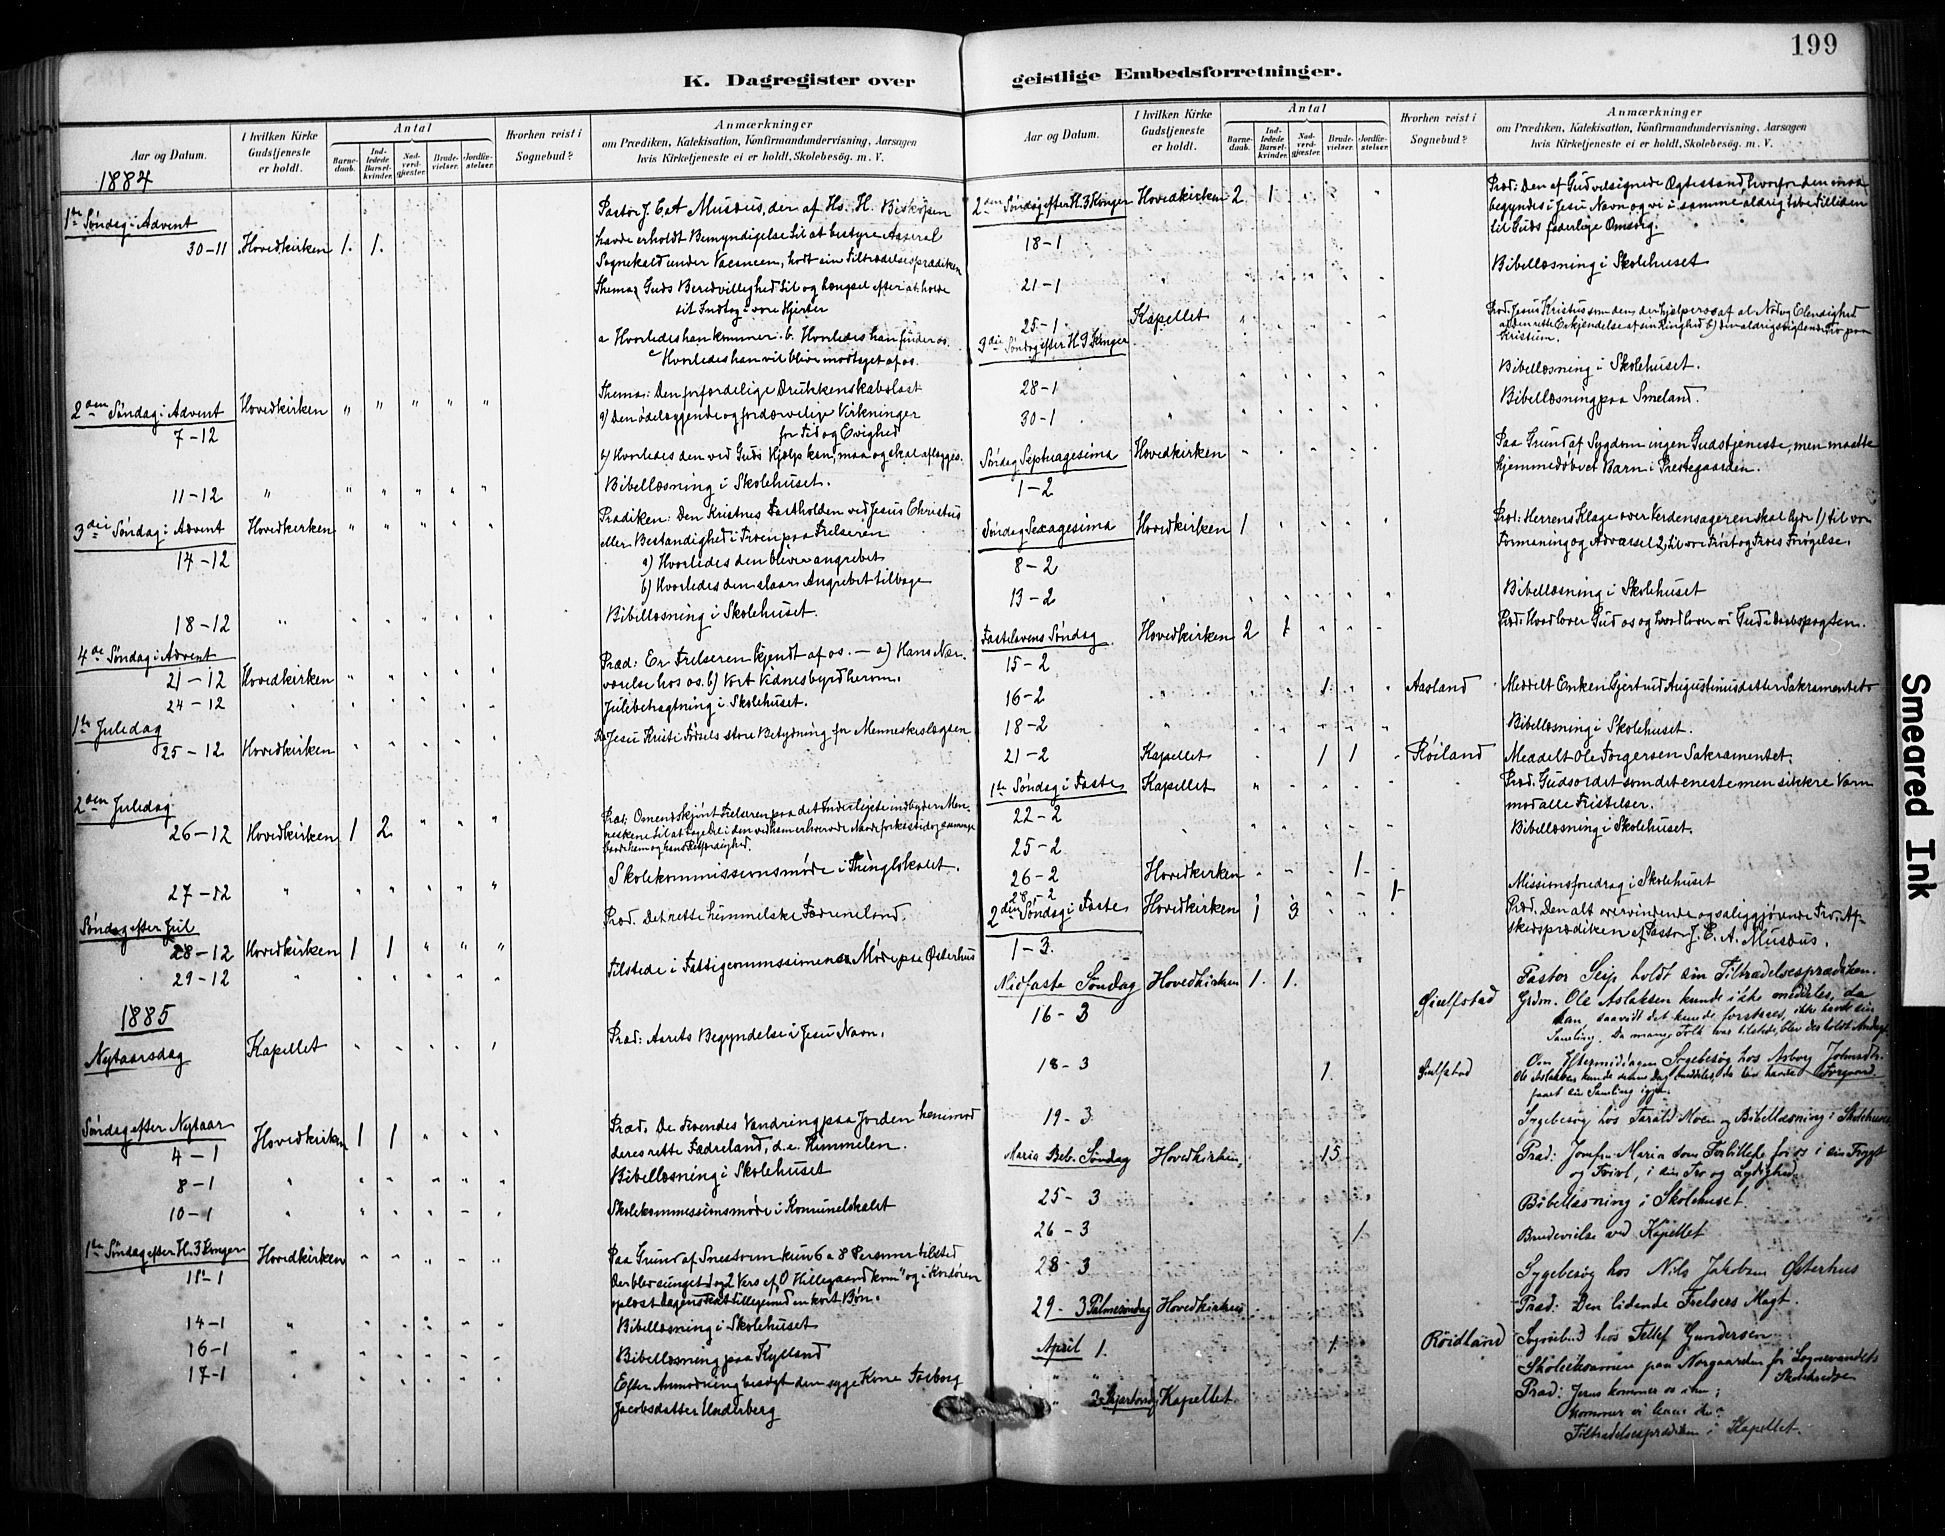 199
K. Dagregister over geistlige Embedsforretninger.
Aar og Datum.
I hvilken Kirke Gudstjeneste er holdt.
Antal
Barnedaab.
Indledede Barselkvinder.
Nadverdgjester.
Brudevielser.
Jordfæstelser.
Hvorhen reist i Sognebud?
Anmærkninger
om Prædiken, Katekisation, Konfirmandundervisning, Aarsagen
hvis Kirketjeneste ei er holdt, Skolebesøg. m. V.
1884
1ste Søndag i Advent
30-11 Hovedkirken 1. 1.
Pastor J. E. A. Musæus, der af Hs. H. Biskopen
havde erholdt Bemyndigelse til at bestyre Aaseral
Sognekald under Vacancen, holdt sin Tiltrædelsesprædiken
Thema: Guds Beredvillighed til og Længsel efter at holde
sit Indtog i vore Hjerter
a Hvorledes han kommer. b. Hvorledes han finder os.
c Hvorledes han vil blive modtaget af os.
2den Søndag i Advent Hovedkirken " " " " "
7-12
Thema: Den fordærdelige Drukkenskabslast
a) Den ødelæggende og fordærvelige Virkninger
for Tid og Evighed
b) Hvorledes den ved Guds Hjælp kan, maa og skal aflægges.
11-12 " " " " " " Bibellæsning i Skolehuset.
3die Søndag i Advent Hovedkirken " " " " "
14-12
Prædiken: Den Kristnes Fastholden ved Jesus Christus
eller Bestandighed i Troen paa Frelseren
a) Hvorledes den bliver angrebet
b) Hvorledes den slaar Angrebet tilbage
18-12 " " " " " " Bibellæsning i Skolehuset.
4de Søndag i Advent
21-12 Hovedkirken " " " " "
Præd: Er Frelseren kjendt af os. — a) Hans Nær-
værelse hos os. b) Vort Vidnesbyrd herom.
24-12 Julebetragtning i Skolehuset.
1ste Juledag
25-12 Hovedkirken " " " " "
Jesu Kristi Fødsels store Betydning for Menneskeslægten
2den Juledag
26-12 Hovedkirken 1 2 " " "
Præd: Omendskjønt Frelseren paa det Inderligste indbyder Men-
neskene til at tage Del i den ved ham erhvervede Naade
27-12 " " " " " " Skolekommissionsmøde i Thinglokalet.
Søndag efter Jul
28-12 Hovedkirken 1 1 " " "
Præd. Det rette himmelske Fædreneland.
29-12 " " " " " " Tilstede i Fattigcommissionens Møde paa Østerhus
1885
Nytaarsdag Kapellet " " " " " Præd: Aarets Begyndelse i Jesu Navn.
Søndag efter Nytaar Hovedkirken 1 1 " " "
4-1
Præd. De Troendes Vandring paa Jorden henimod
deres rette Fædreland, d.e. Himmelen.
8-1 " " " " " " Bibellæsning i Skolehuset
10-1 " " " " " " Skolekommissionsmøde i Komunelokalet
1ste Søndag efter H. 3 Konger Hovedkirken " " " " "
11-1
Paa Grund af Snestorm kun 6 a 8 Personer tilsted
Der blev sunget 1 og 2 Vers af "O Hilleg aand kom" og i Kordøren
oplæst Dagens Text tilligemed en kort Bøn.
14-1 " " " " " " Bibellæsning i Skolehuset
16-1 Bibellæsning paa Kylland
17-1 " " " " " " Efter Anmodning besøgt den syge Kone Torborg
Jacobsdatter Underberg
Aar og Datum.
I hvilken Kirke Gudstjeneste er holdt.
Antal
Barnedaab.
Indledede Barselkvinder.
Nadverdgjester.
Brudevielser.
Jordfæstelser.
Hvorhen reist i Sognebud?
Anmærkninger
om Prædiken, Katekisation, Konfirmandundervisning, Aarsagen
hvis Kirketjeneste ei er holdt, Skolebesøg. m. V.
2den Søndag efter H. 3 Konger Hovedkirken 2 1 " " "
18-1
Præd: Den af Gud velsignede Ægtestand, hvorfor den maa
begyndes i Jesu Navn, og vi i samme aldrig tabe Tilliden
til Guds faderlige Omsorg.
21-1 " " " " " " Bibellæsning i Skolehuset
25-1 Kapellet " " " " "
3die Søndag efter H. 3 Konger
Præd. Jesus Kristus som den, der hjælper os af al Nød og Elendighed
a) den rette Erkjendelse af sin Ringhed b) den aldrig svigtende Tro paa
Kristum.
28-1 " " " " " " Bibellæsning i Skolehuset.
30-1 " " " " " Bibellæsning paa Smeland.
Søndag Septuagesima Hovedkirken " " " " "
1-2
Paa Grund af Sygdom ingen Gudstjeneste, men maatte
hjemmedøbvet Barn i Prestegaarden.
Søndag Sexagesima Hovedkirken 1 " " " "
8-2
Præd: Herrens Klage over Verdensageren skal lyde 1) til vor
Formaning og Advarsel 2) til vor Trøst og Troes Forøgelse.
13-2 " " " " " " Bibellæsning i Skolehuset
Fastelavens Søndag Hovedkirken 2 1 " " "
15-2
Præd: Hvad lover Gud os og hvad lover vi Gud i Daabspagten.
16-2 " " " 1. " " Aasland Meddelt Enken Gjertrud Augustinusdatter Sakramentet
18-2 " " " " " " Bibellæsning i Skolehuset.
21-2 Kapellet " " 1 1 " Røiland Meddelt Ole Torgersen Sakramentet.
1ste Søndag i Faste Kapellet " " " " "
22-2
Præd. Guds ord det som det eneste men sikkre Værn
mod alle Fristelser.
25-2 " " " " " " Bibellæsning i Skolehuset.
26-2 Hovedkirken " " " 1. "
28-2 1 Missionsforedrag i Skolehuset
2den Søndag i Faste Hovedkirken 1 3 " " "
1-3.
Præd. Den alt overvindende og saliggjørende Tro. Af-
skedsprædiken af Pastor J. E. A. Musæus.
Midfaste Søndag Hovedkirken 1. 1.
16-3
Pastor Seip holdt sin Tiltrædelsesprædiken.
Grdm. Ole Aslaksen kunde ikke meddeles, da
han, saavidt det kunde forstaaes, ikke havde sin
Samling. Da mange Folk var tilstede, blev der holdt Andagt
18-3 1.
Om Eftermiddagen Sygebesøg hos Asborg
Ole Aslaksen kunde denne Dag meddeles, da han havde
faaet sin Samling igjen.
19-3 Sygebesøg hos Tarald Moen og Bibellæsning i Skolehuset
Maria Beb. Søndag Hovedkirken. 15
Præd: Jomfru Maria som Forbillede for os i sin Frygt
og Tvivl, i sin Tro og Lydighed.
25-3 Bibellæsning i Skolehuset.
26-3 1 Brudevielse ved Kapellet
28-3 Sygebesøg hos Nils Jakobsen Østerhus
29-3 Palmesøndag Hovedkirken Præd: Den lidende Frelsers Magt.
April 1. 1. Røidland Sognebud hos Tellef Gundersen
Skoleeksamen paa Norgaarden for Sognevandets
Skolekreds
" 2 Skjærtorsdag Kapellet
Præd: Jesus kommer os ihu;
kommer vi ham ihu?
Tiltrædelsesprædiken i Kapellet.
Smeared Ink